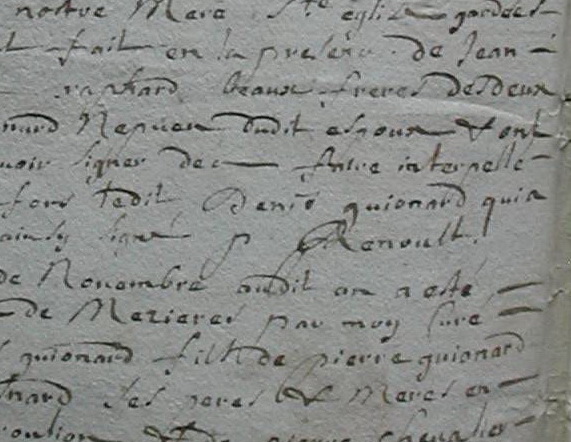 nostre Mere Ste eglise gardees
fait en la presence de Jean
raphard beaux freres des deux
nard Nepueu dudit espoux & ont
signer de ce faire interpellé
fors ledit Denis guionard qui a
ainsy signé p Renoult
de Nouembre audit an a esté
de Mezieres par moy Curé
guionard fils de pierre guionard
nard ses peres & Meres en
& de pierre Chevalier